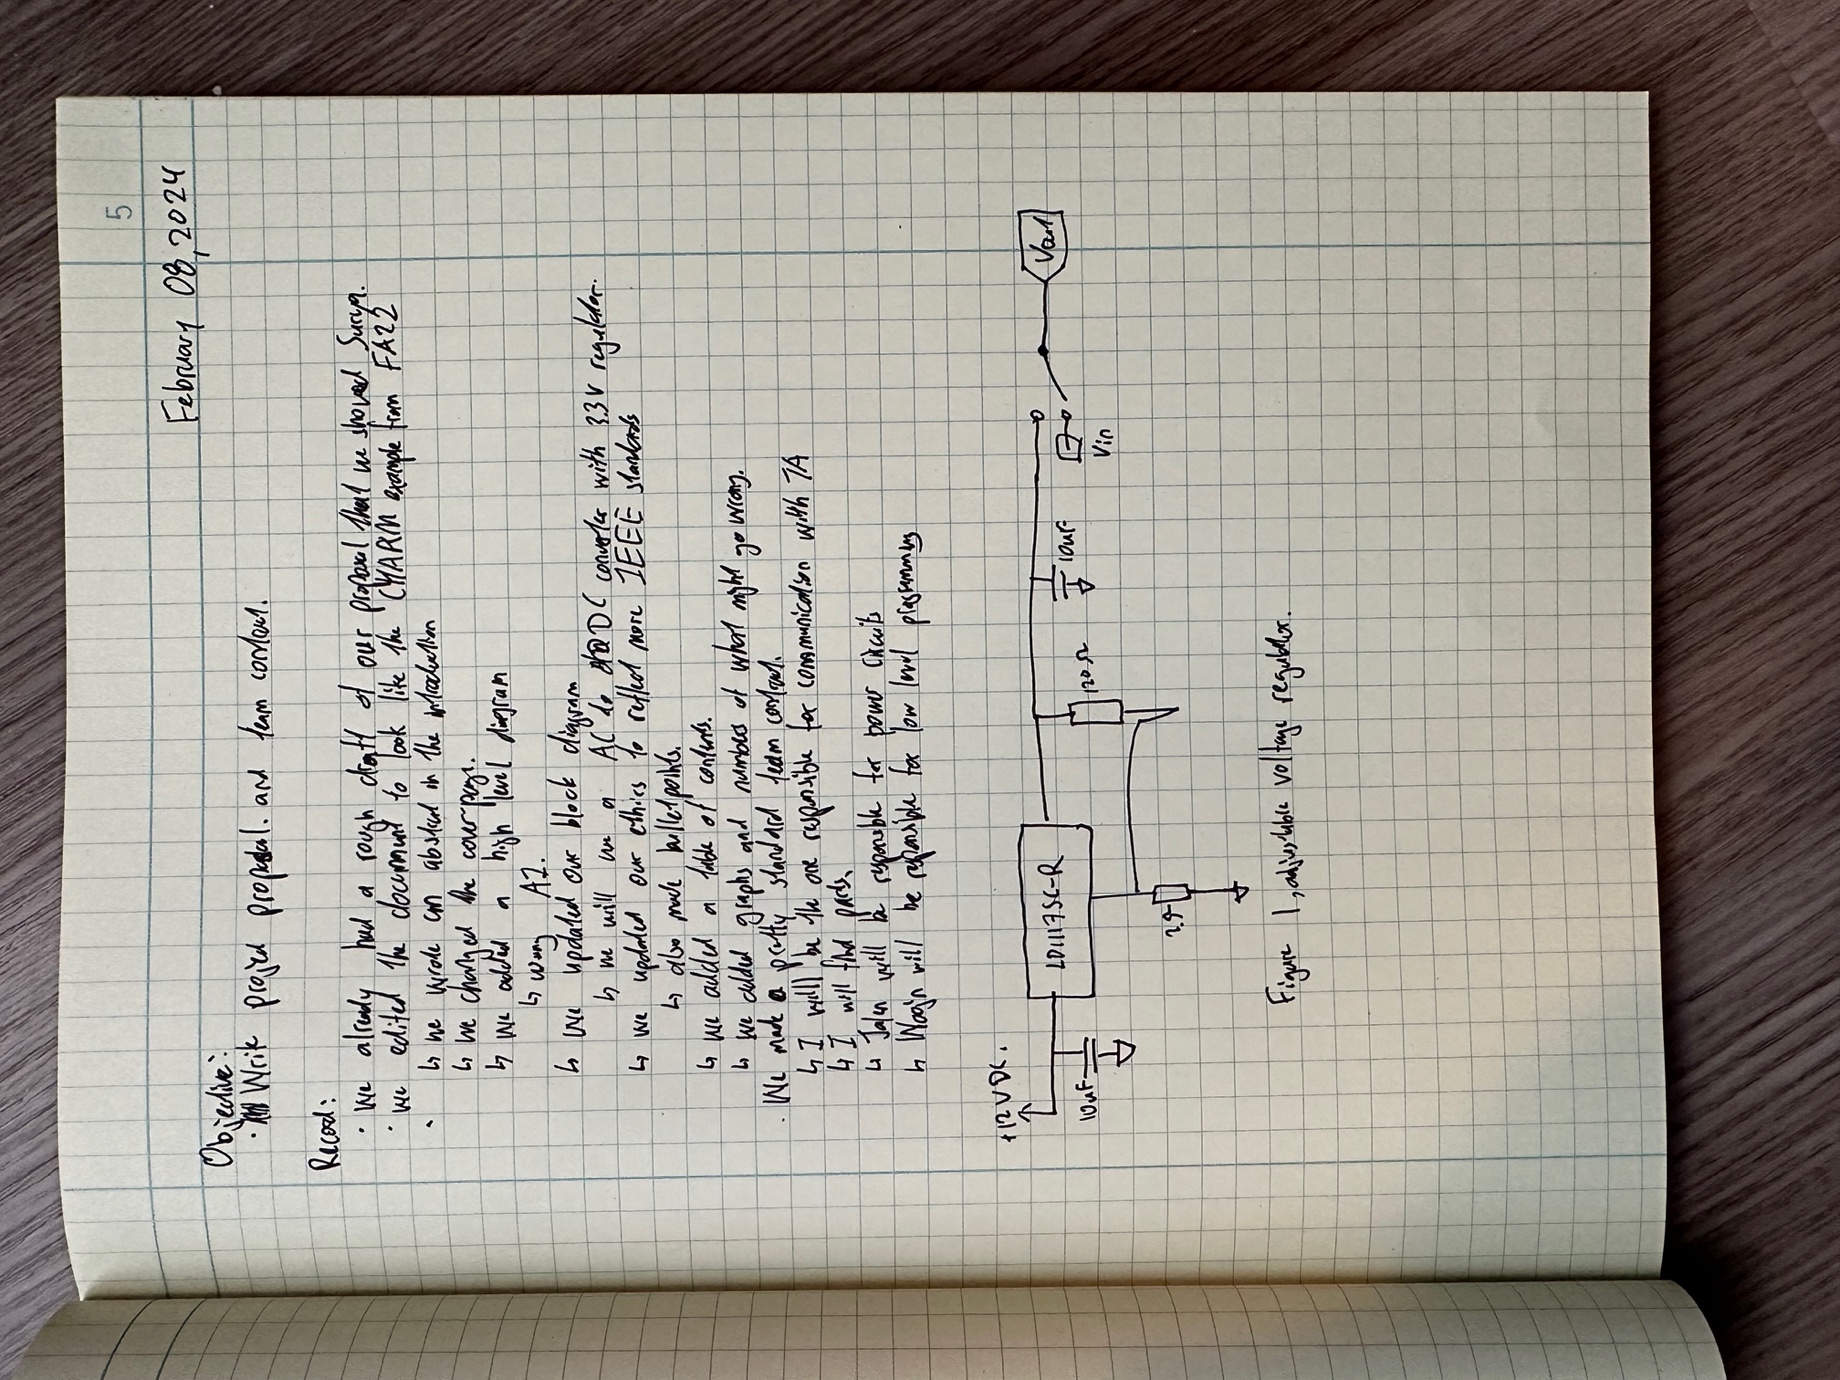 5
February 08, 2024
Objective:
· Write project proposal. and team contract.
Record:
· We already had a rough draft of our proposal that we showed Surya.
· we edited the document to look like the CHARM example from FA22
· ↳ we wrote an abstract in the introduction
↳ we changed the cover page.
↳ we added a high level diagram
↳ using AI.
↳ We updated our block diagram
↳ we will use a AC to DC converter with 3.3V regulator.
↳ we updated our ethics to reflect more IEEE standards
↳ also made bulletpoints.
↳ we added a table of contents.
↳ we added graphs and numbers of what might go wrong.
· We made a pretty standard team contract.
↳ I will be the one responsible for communication with TA
↳ I will find parts.
↳ Jalen will be responsible for power circuits
↳ will be responsible for low level programming
+12VDC.
10uF
LD1117S-R
120Ω
10uF
Vin
Vout
Figure 1, adjustable voltage regulator.